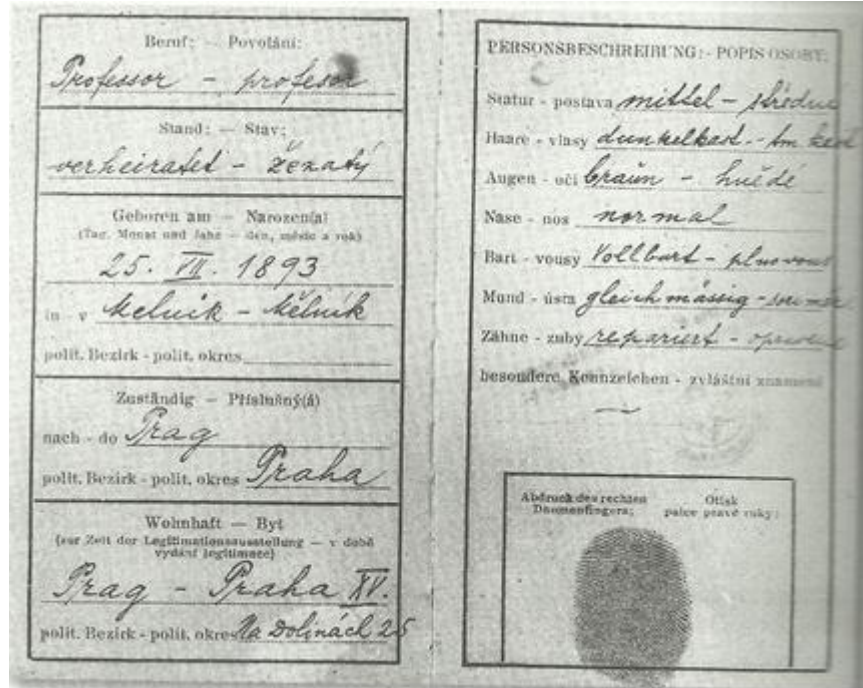 Beruf: — Povolání:
Professor - profesor
Stand: — Stav:
verheiratet - ženatý
Geboren am — Narozen(a)
(Tag, Monat und Jahr — den, měsíc a rok)
25. VII. 1893
in - v Melnik - Mělník
polit. Bezirk - polit. okres
Zuständig — Příslušný(á)
nach - do Prag
polit. Bezirk - polit. okres Praha
Wohnhaft — Byt
(zur Zeit der Legitimationsausstellung — v době
vydání legitimace)
Prag - Praha XV.
polit. Bezirk - polit. okres Na Dolinách 25
PERSONSBESCHREIBUNG: - POPIS OSOBY:
Statur - postava mittel - střední
Haare - vlasy dunkelkast. - tm. kašt
Augen - oči braun - hnědé
Nase - nos normal
Bart - vousy Vollbart - plnovous
Mund - ústa gleichmässig -
Zähne - zuby repariert - opravené
besondere Kennzeichen - zvláštní znamení
Abdruck des rechten Otisk
Daumenfingers: palce pravé ruky: